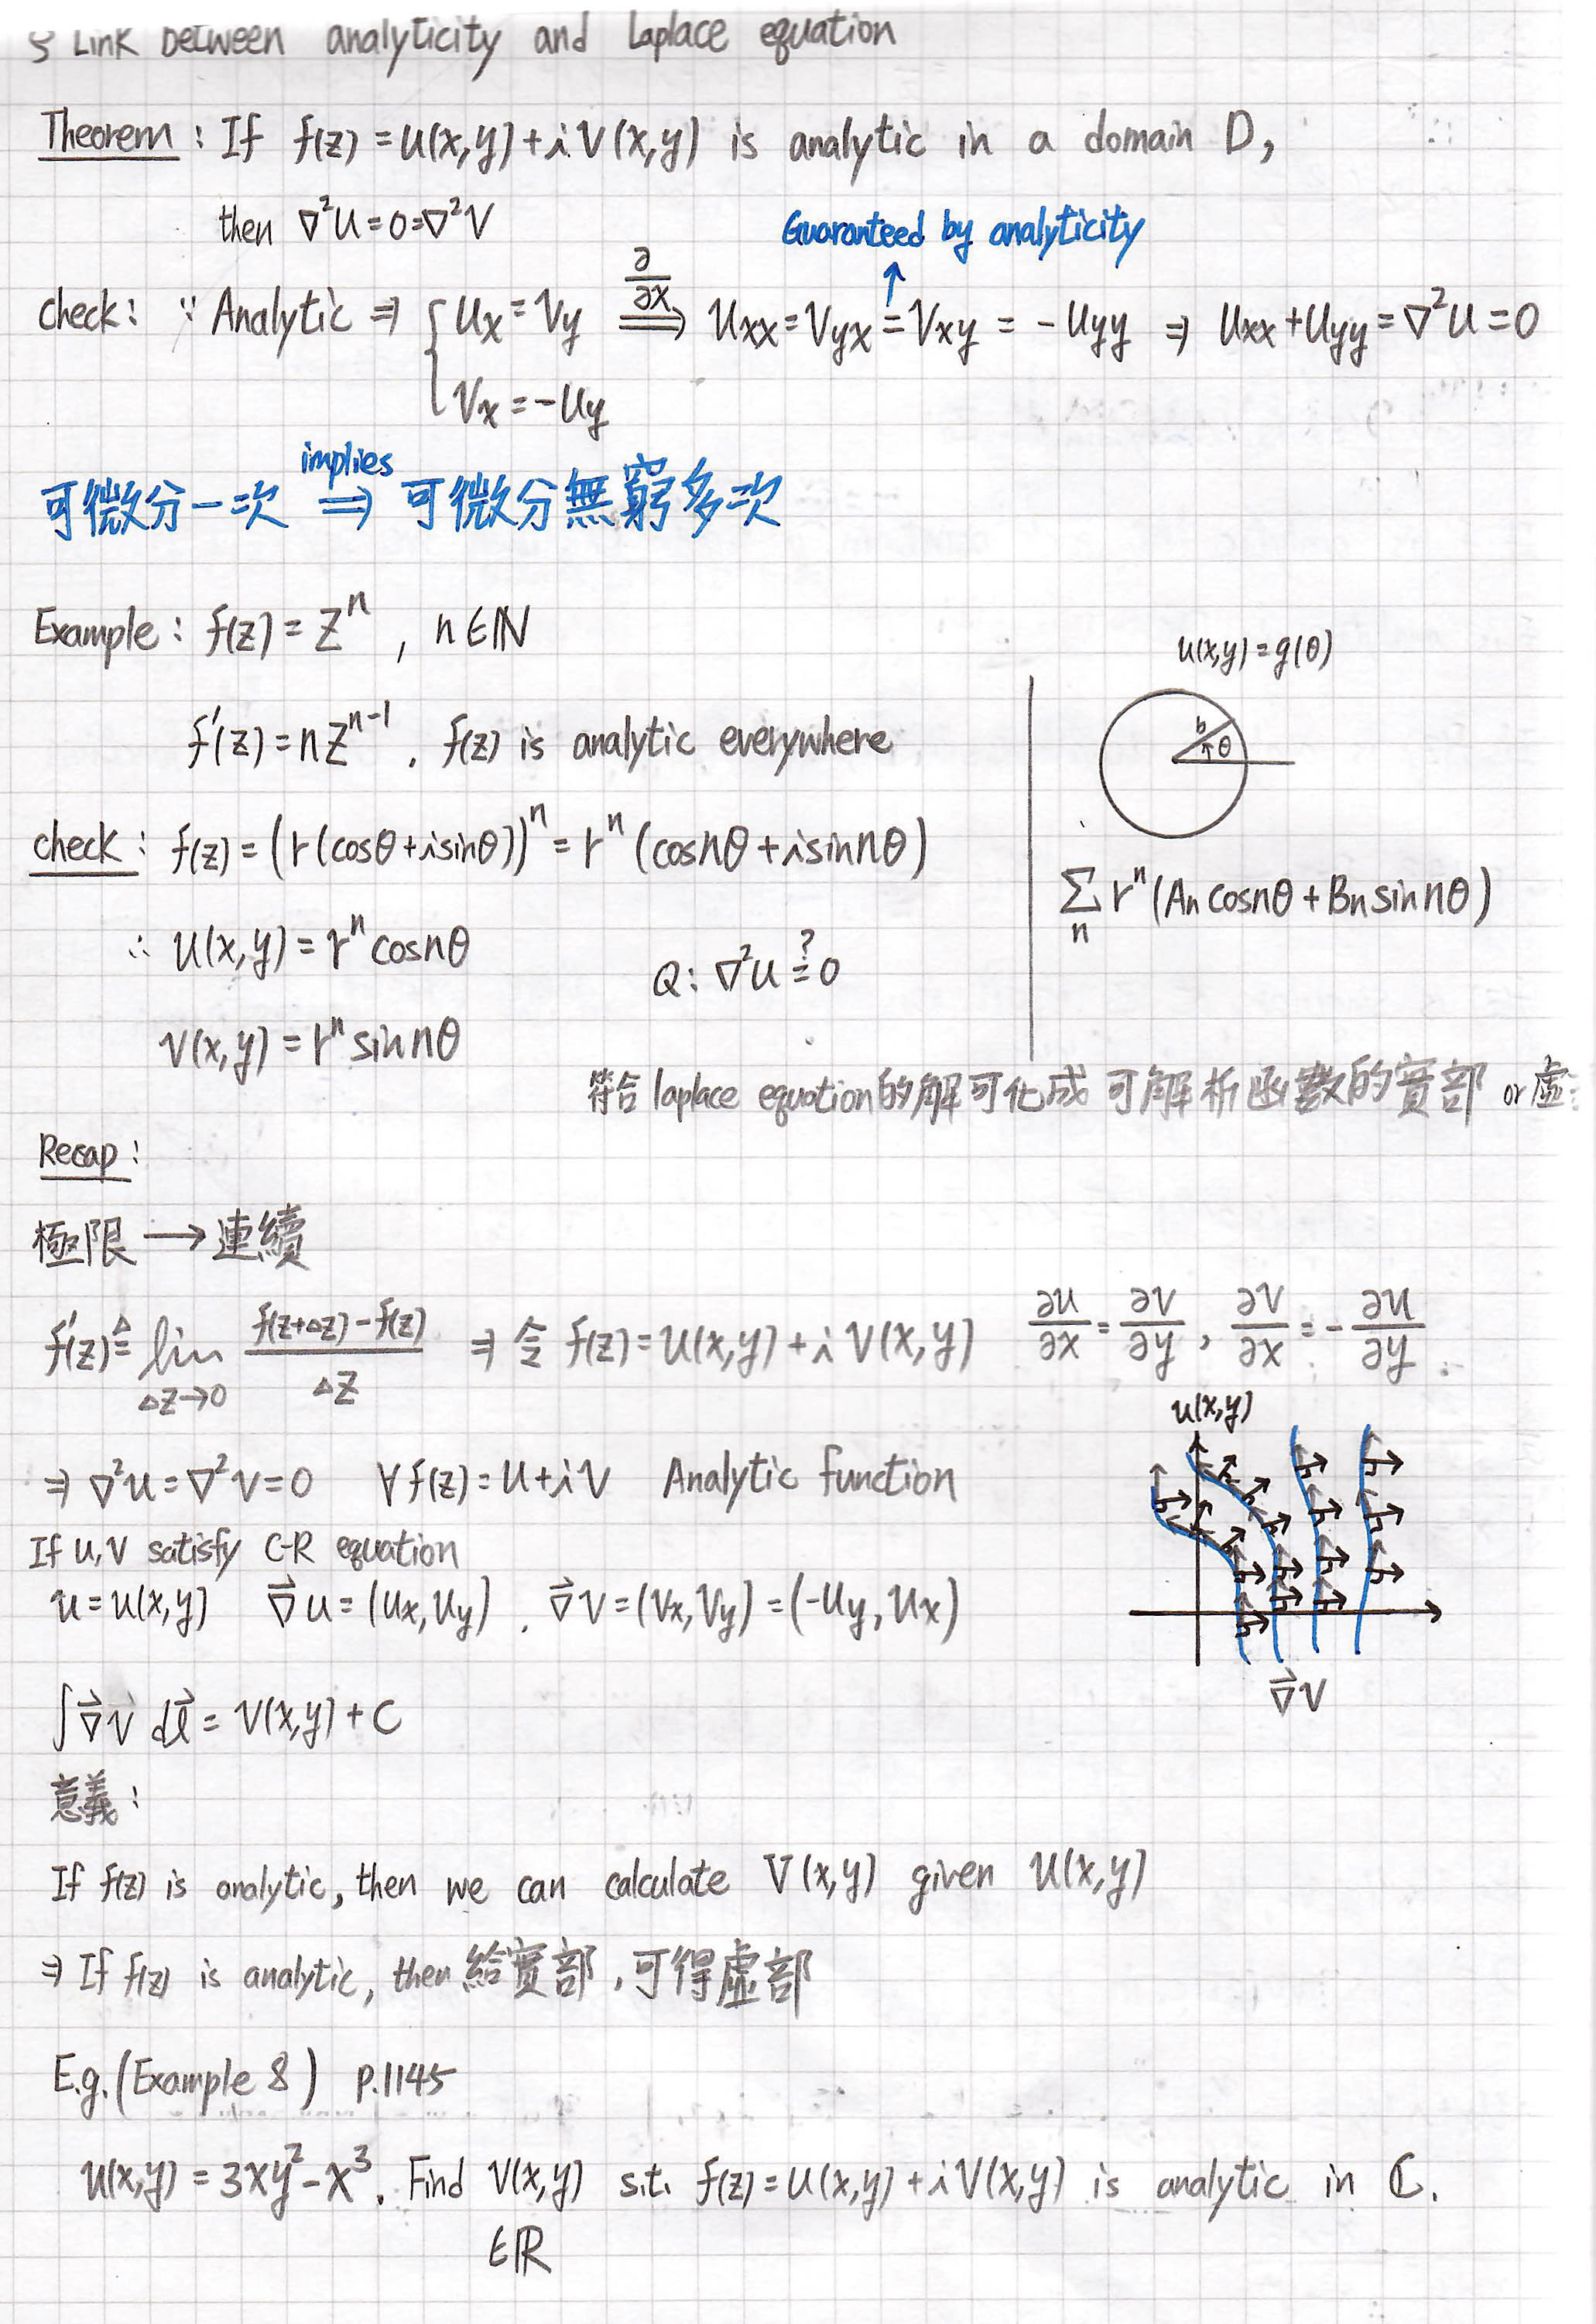 § Link between analyticity and Laplace equation
Theorem : If f(z) = u(x,y) + i v(x,y) is analytic in a domain D,
then ∇²u = 0 = ∇²v
Guaranteed by analyticity
↑
check : ∵ Analytic ⇒ { ux = vy ∂/∂x ⟹ uxx = vyx = vxy = -uyy ⇒ uxx + uyy = ∇²u = 0
vx = -uy
implies
可微分一次 ⟹ 可微分無窮多次
Example : f(z) = z^n , n ∈ ℕ
f'(z) = nz^(n-1) . f(z) is analytic everywhere
check : f(z) = (r(cosθ + i sinθ))^n = r^n (cos nθ + i sin nθ)
∴ u(x,y) = r^n cos nθ
Q : ∇²u ?= 0
v(x,y) = r^n sin nθ
u(x,y) = g(θ)
b θ
Σ_n r^n (An cos nθ + Bn sin nθ)
符合 laplace equation 的解可化成 可解析函數的實部 or 虛
Recap :
極限 → 連續
f'(z) ≜ lim_(Δz→0) (f(z+Δz) - f(z))/Δz ⇒ 令 f(z) = u(x,y) + i v(x,y) ∂u/∂x = ∂v/∂y , ∂v/∂x = -∂u/∂y .
⇒ ∇²u = ∇²v = 0 ∀ f(z) = u + i v Analytic function
If u, v satisfy C-R equation
u = u(x,y) ∇⃗u = (ux, uy) . ∇⃗v = (vx, vy) = (-uy, ux)
u(x,y)
∇⃗v
∫ ∇⃗v dl⃗ = v(x,y) + C
意義 :
If f(z) is analytic, then we can calculate v(x,y) given u(x,y)
⇒ If f(z) is analytic, then 給實部 , 可得虛部
E.g. (Example 8) p.1145
u(x,y) = 3xy² - x³ . Find v(x,y) s.t. f(z) = u(x,y) + i v(x,y) is analytic in ℂ.
∈ℝ